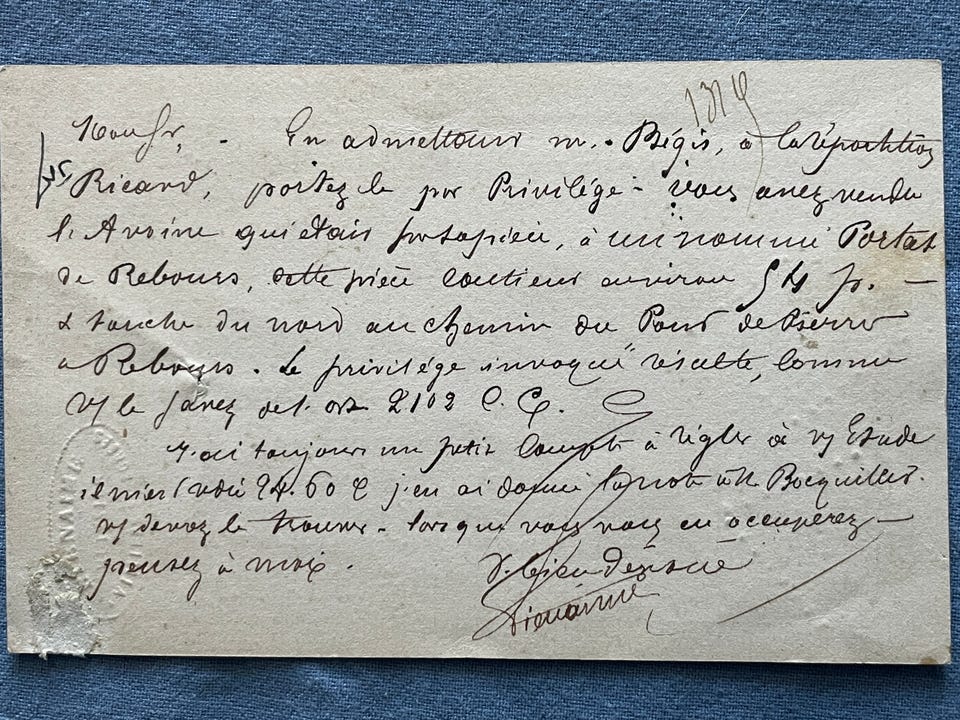 1319
Monsr, - En admettant m. Bégis, à la répartition
Ricard, portez le par Privilége - vous avez vendu
l'Avoine qui était sur la pièce, à un nommé Portat
de Rebours, cette pièce contient environ 54 p. -
& touche du nord au chemin du Pont de Pierre
a Rebours. Le privilége invoqué résulte, comme
vs le savez de l'art 2102 C. C.
J'ai toujours un petit compte à régler à vs Etude
il m'est dû 24.60 & j'en ai donné la note à M Bocquillet.
vs devez le trouver - lorsque vous vous en occuperez -
pensez à moi. V. bien dévoué